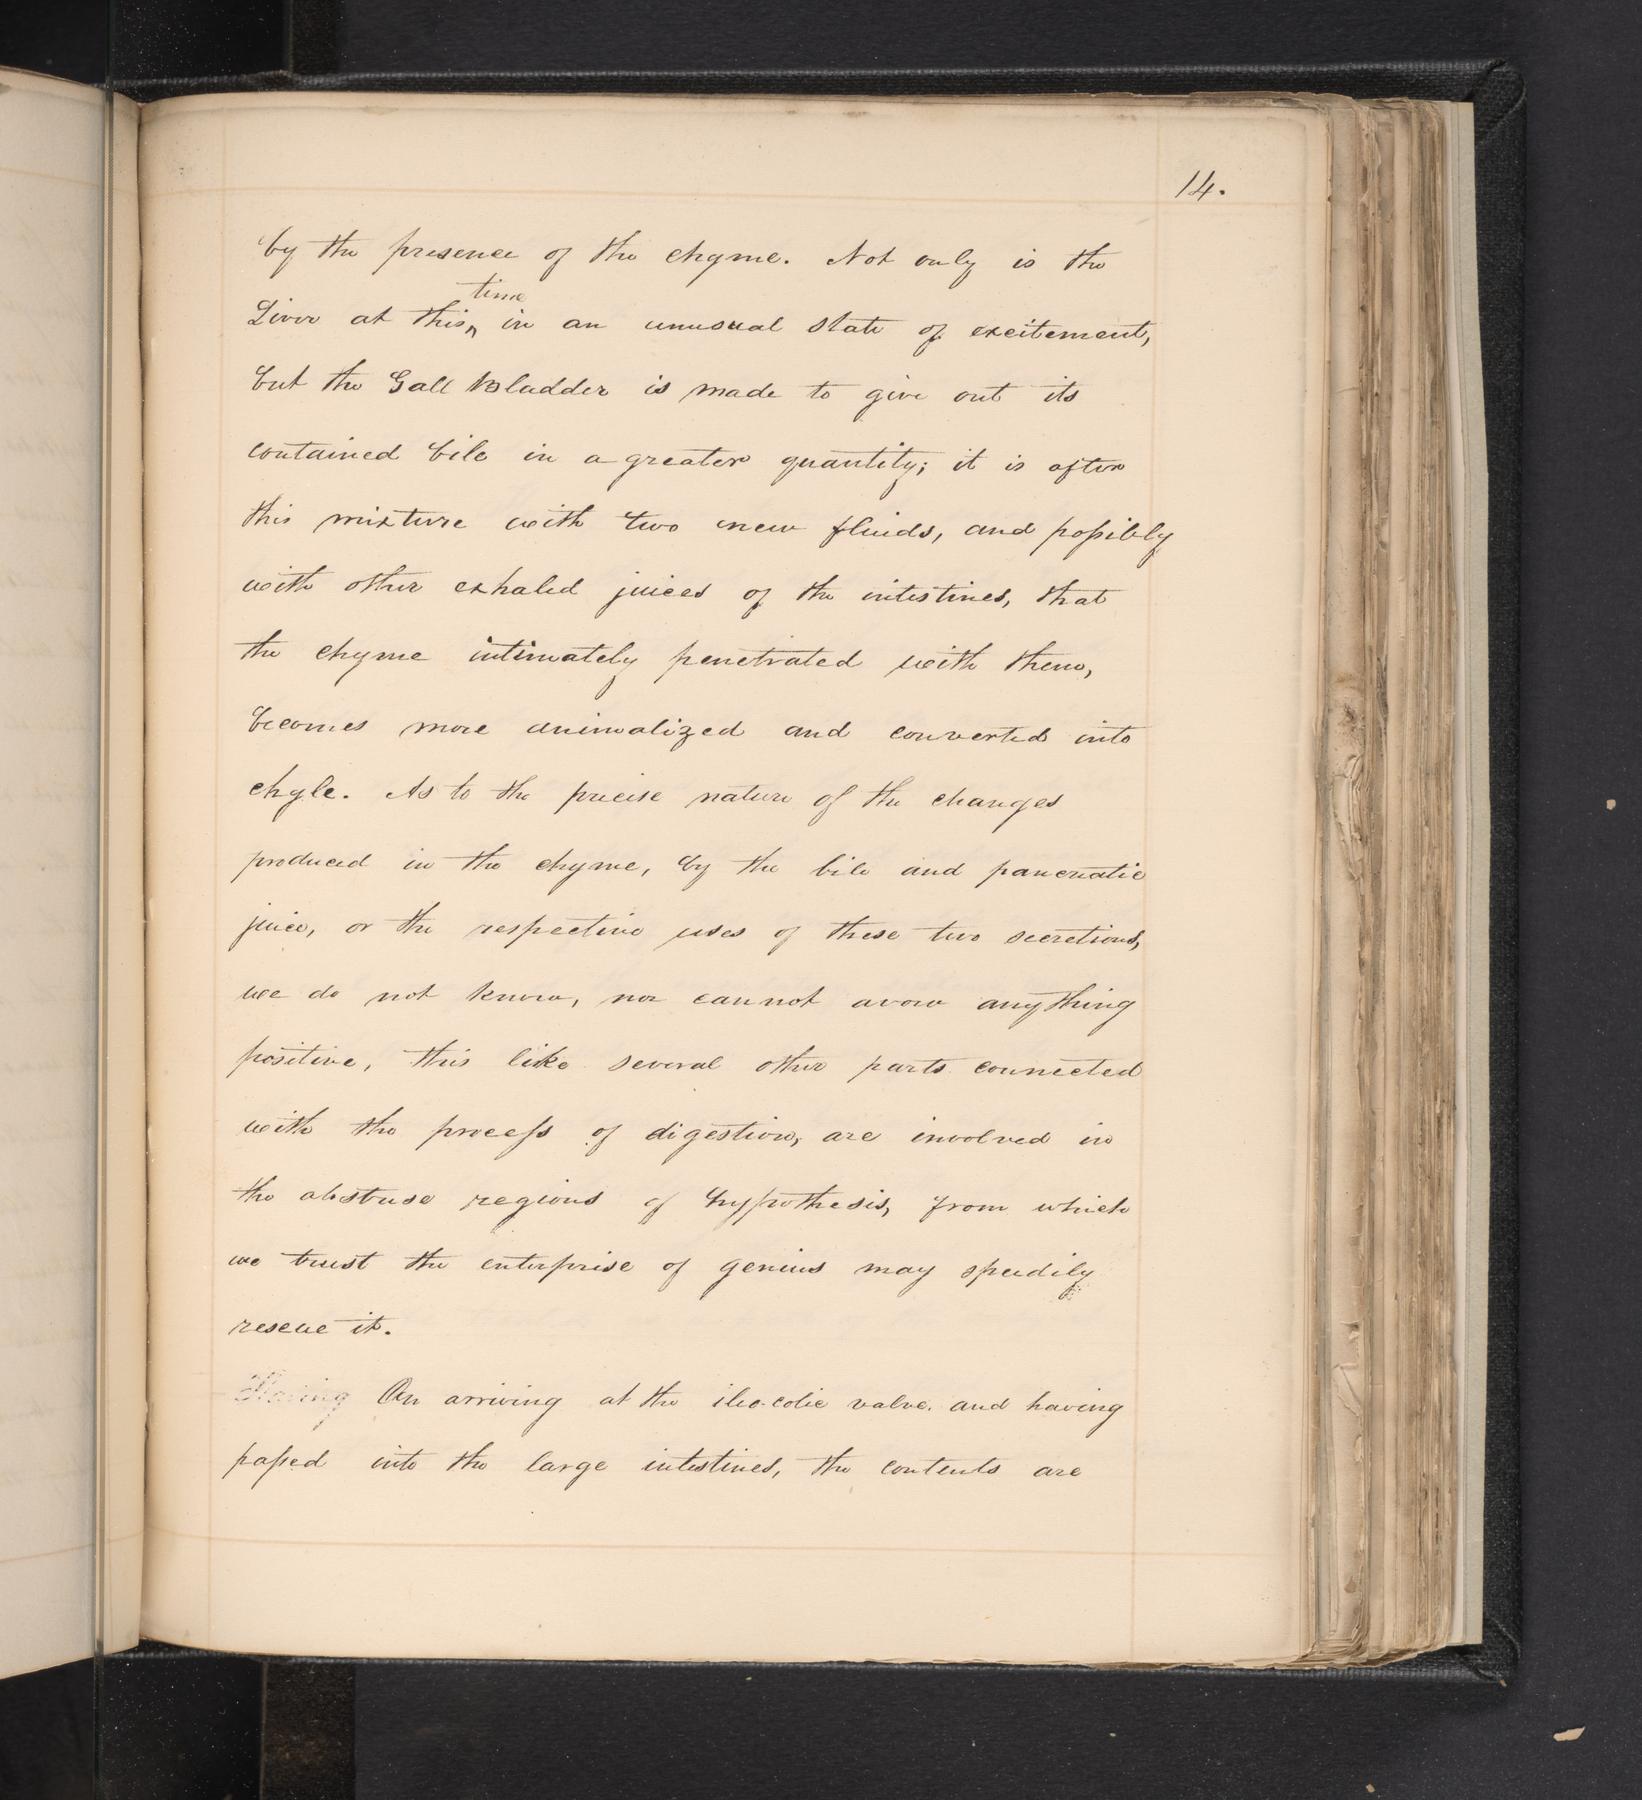 14.
by the presence of the chyme. Not only is the
time
Liver at this^ in an unusual state of excitement,
but the Gall Bladder is made to give out its
contained bile in a greater quantity; it is after
this mixture with two new fluids, and poſsibly
with other exhaled juices of the intestines, that
the chyme intimately penetrated with them,
becomes more animalized and converted into
chyle. As to the precise nature of the changes
produced in the chyme, by the bile and pancreatic
juice, or the respective uses of these two secretions,
we do not know, nor cannot avow anything
positive, this like several other parts connected
with the proceſs of digestion, are involved in
the abstruse regions of hypothesis, from which
we trust the enterprise of genius may speedily
rescue it.
Having On arriving at the ileo-colic valve. and having
paſsed into the large intestines, the contents are